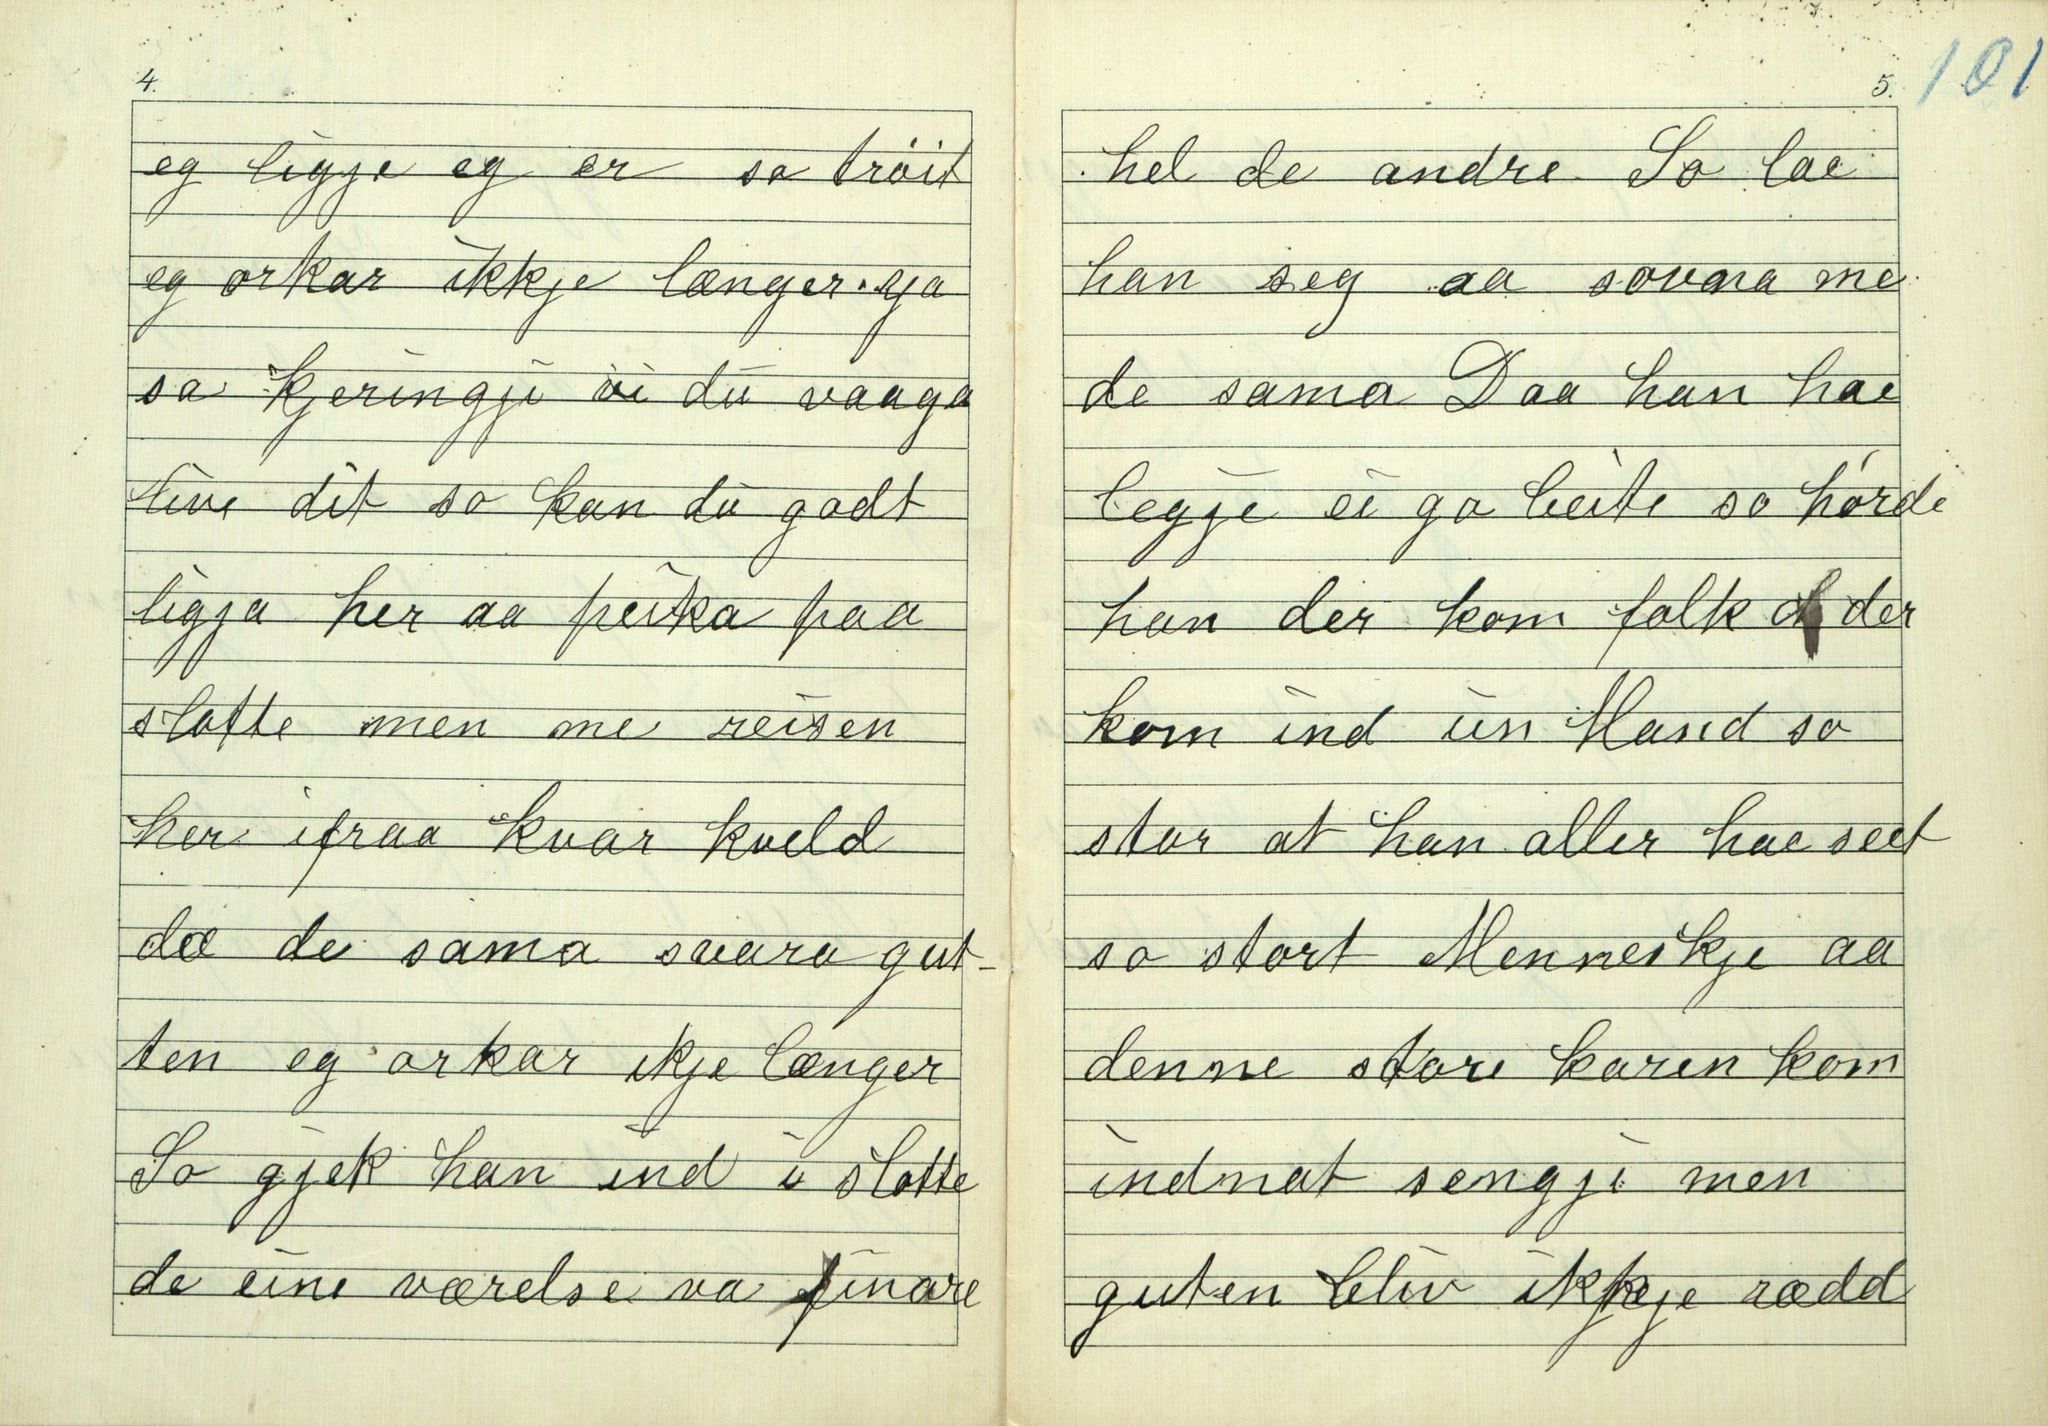 4.
eg ligje eg er so trøit
eg orkar ikkje længer. ja
sa kjeringji vi du vaaga
live dit so kan du godt
ligja her aa peika paa
slotte men me reisen
her ifraa kvar kveld
dæ de sama svara gut-
ten eg orkar ikje længer
So gjek han ind i slotte
de eine værelse va finare
5.
101
hel de andre. So lae
han seg aa sovna me
de sama Daa han hae
legje ei go leite so hørde
han der kom folk der
kom ind ein Mand so
stor at han aller hae seet
so stort Menneskje aa
denne store karen kom
indnat sengji men
guten bliv ikkje rædd